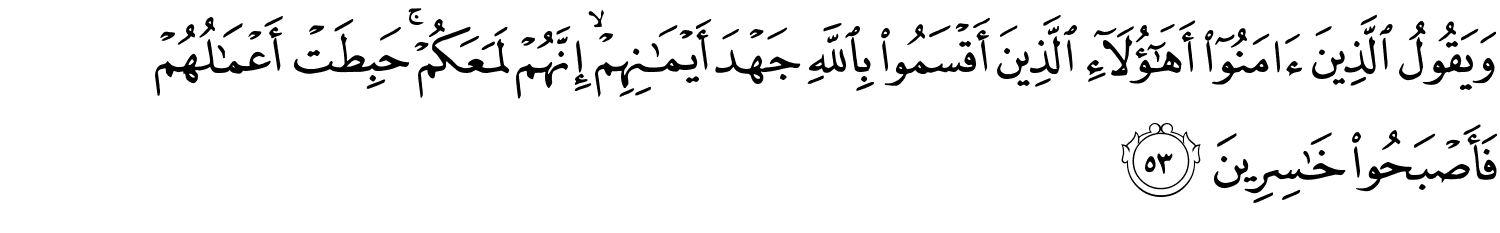 وَيَقُولُ ٱلَّذِينَ ءَامَنُوٓا۟ أَهَـٰٓؤُلَآءِ ٱلَّذِينَ أَقْسَمُوا۟ بِٱللَّهِ جَهْدَ أَيْمَـٰنِهِمْ ۙ إِنَّهُمْ لَمَعَكُمْ ۚ حَبِطَتْ أَعْمَـٰلُهُمْ
فَأَصْبَحُوا۟ خَـٰسِرِينَ ٥٣